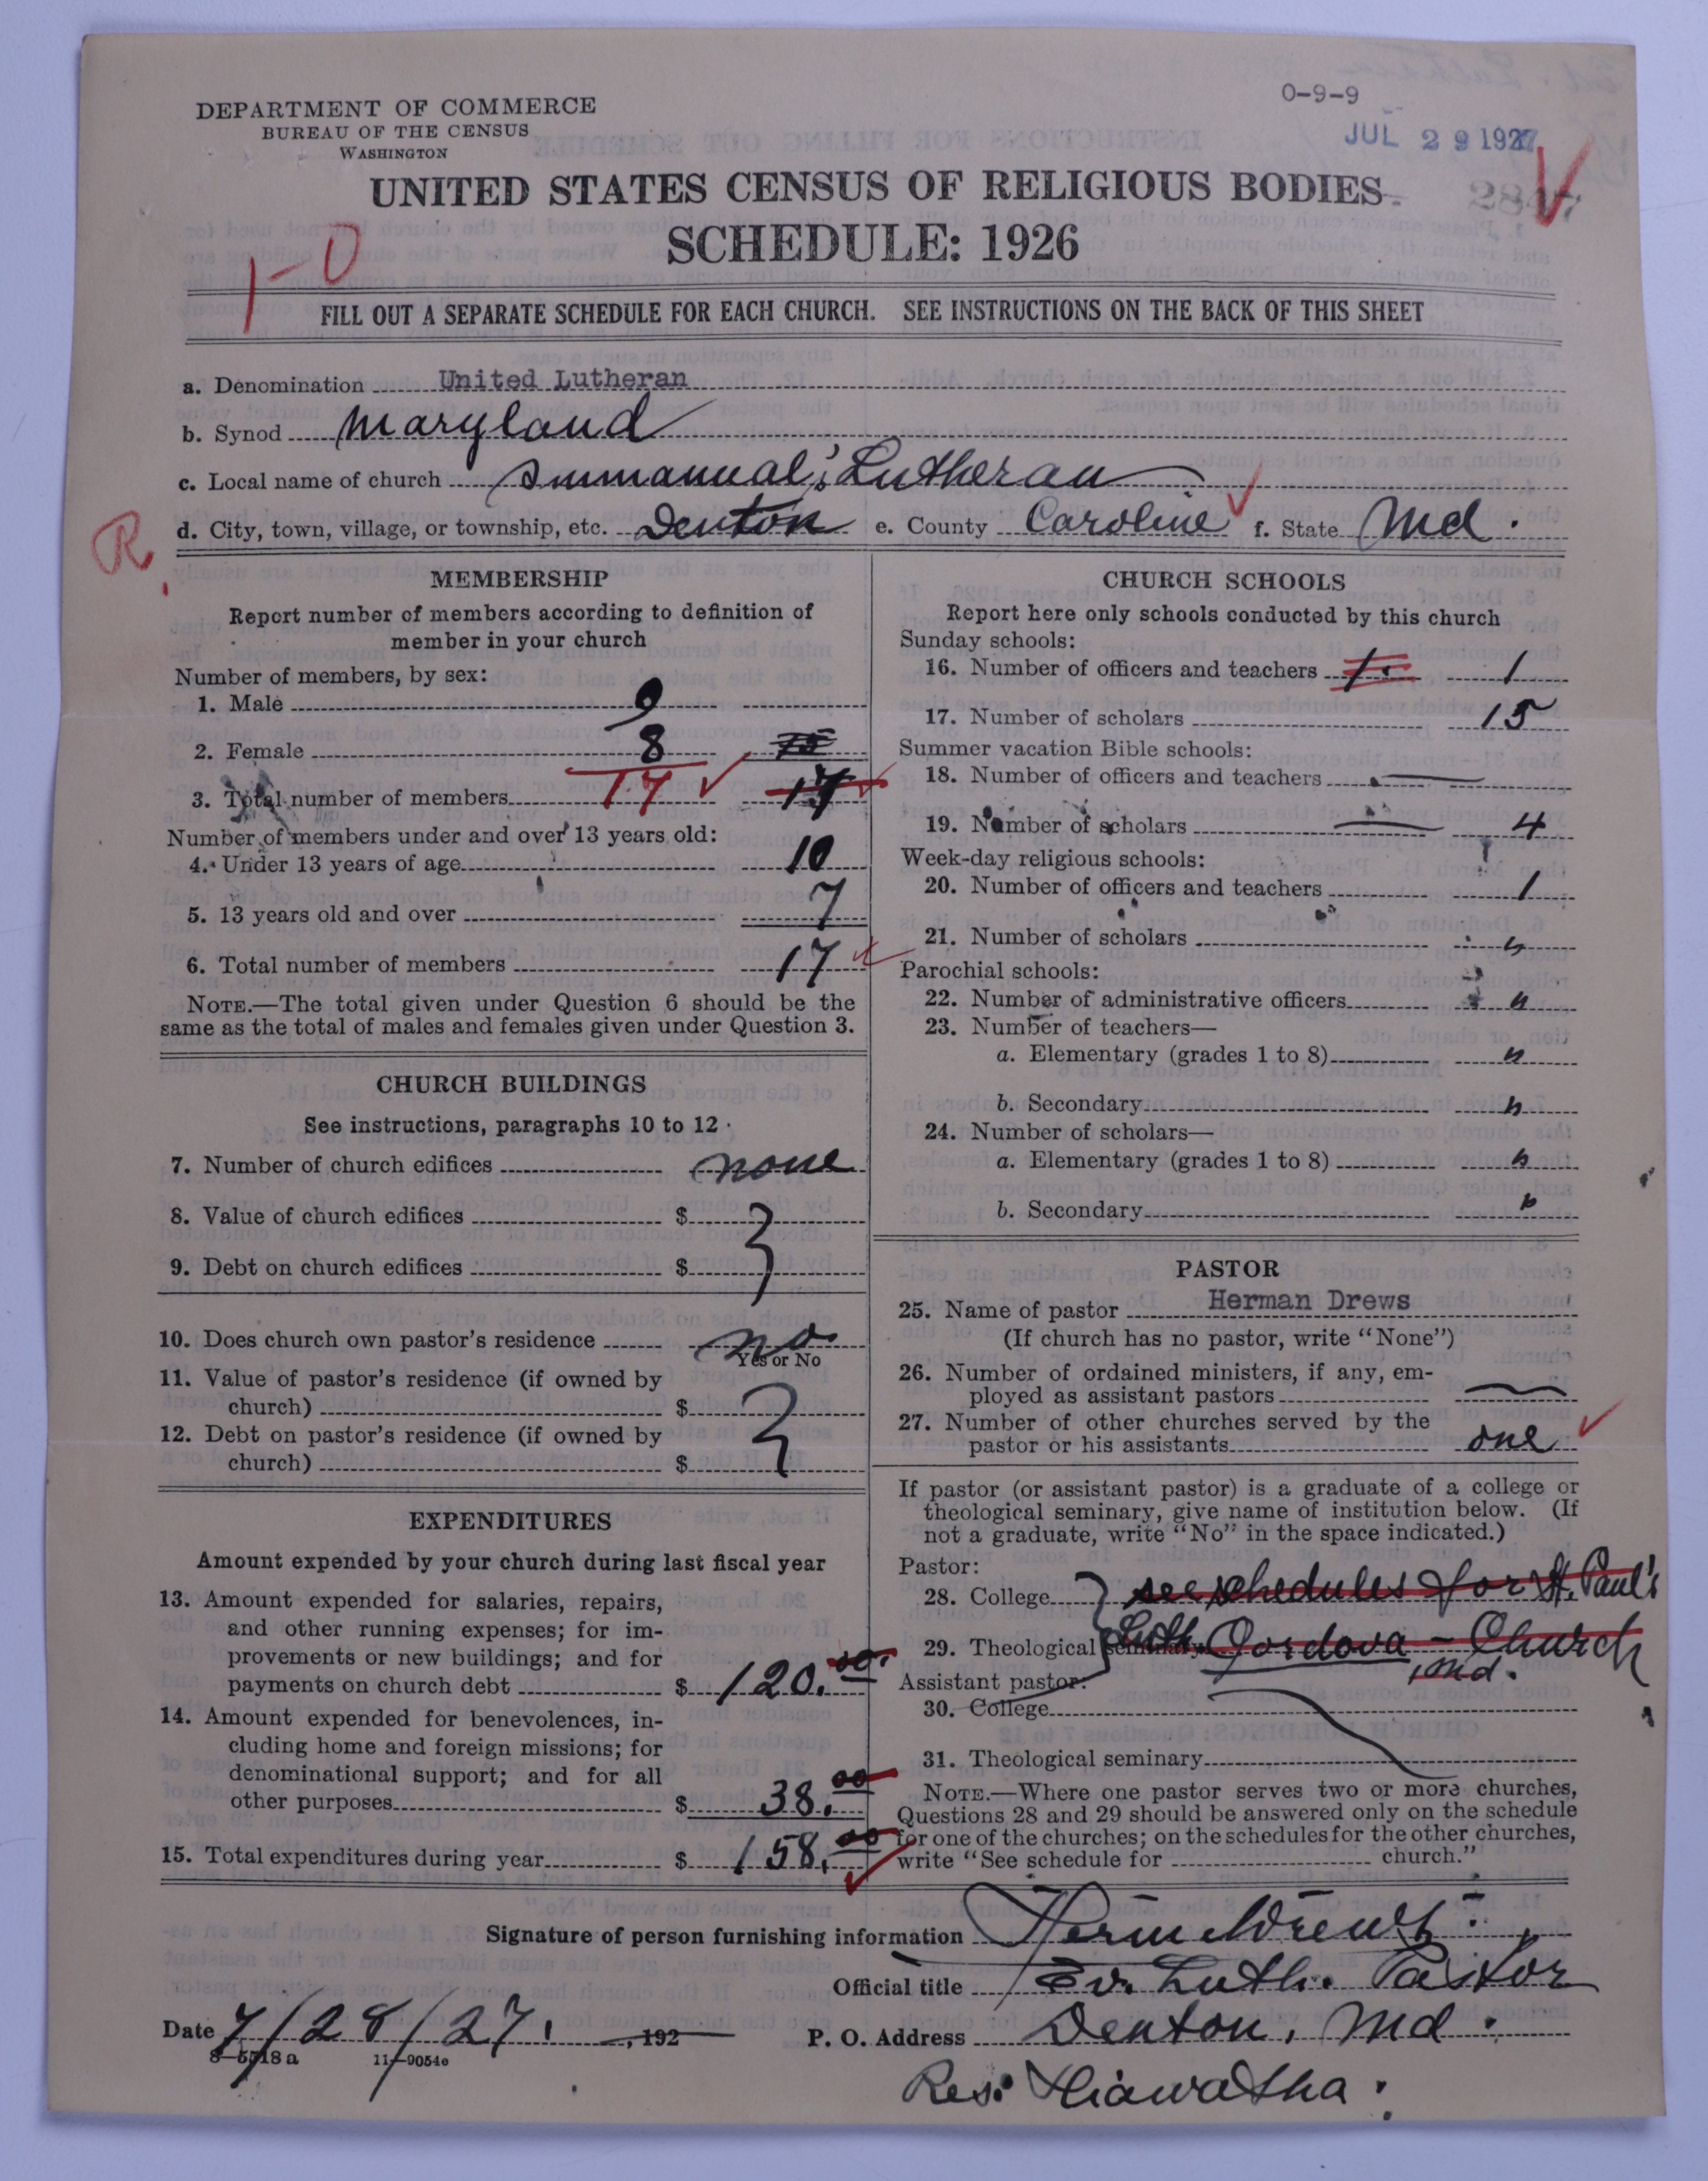 0-9-9
DEPARTMENT OF COMMERCE
BUREAU OF THE CENSUS
WASHINGTON
JUL 29 1927
UNITED STATES CENSUS OF RELIGIOUS BODIES
SCHEDULE: 1926
1-0
FILL OUT A SEPARATE SCHEDULE FOR EACH CHURCH. SEE INSTRUCTIONS ON THE BACK OF THIS SHEET
a. Denomination United Lutheran
b. Synod Maryland
c. Local name of church Immanual's Lutheran
R. d. City, town, village, or township, etc. Denton e. County Caroline f. State Md.
MEMBERSHIP
Report number of members according to definition of
member in your church
Number of members, by sex:
1. Male 9
2. Female 8
3. Total number of members 17 17
Number of members under and over 13 years old:
4. Under 13 years of age 10
5. 13 years old and over 7
6. Total number of members 17
NOTE.—The total given under Question 6 should be the
same as the total of males and females given under Question 3.
CHURCH BUILDINGS
See instructions, paragraphs 10 to 12
7. Number of church edifices none
8. Value of church edifices $
9. Debt on church edifices $
10. Does church own pastor's residence no
Yes or No
11. Value of pastor's residence (if owned by
church) $
12. Debt on pastor's residence (if owned by
church) $
EXPENDITURES
Amount expended by your church during last fiscal year
13. Amount expended for salaries, repairs,
and other running expenses; for im-
provements or new buildings; and for
payments on church debt $ 120.00
14. Amount expended for benevolences, in-
cluding home and foreign missions; for
denominational support; and for all
other purposes $ 38.00
15. Total expenditures during year $ 158.00
CHURCH SCHOOLS
Report here only schools conducted by this church
Sunday schools:
16. Number of officers and teachers 1. 1
17. Number of scholars 15
Summer vacation Bible schools:
18. Number of officers and teachers —
19. Number of scholars — 4
Week-day religious schools:
20. Number of officers and teachers 1
21. Number of scholars
Parochial schools:
22. Number of administrative officers
23. Number of teachers—
a. Elementary (grades 1 to 8)
b. Secondary
24. Number of scholars—
a. Elementary (grades 1 to 8)
b. Secondary
PASTOR
25. Name of pastor Herman Drews
(If church has no pastor, write "None")
26. Number of ordained ministers, if any, em-
ployed as assistant pastors —
27. Number of other churches served by the
pastor or his assistants one
If pastor (or assistant pastor) is a graduate of a college or
theological seminary, give name of institution below. (If
not a graduate, write "No" in the space indicated.)
Pastor:
28. College see schedules for St. Paul's
29. Theological seminary Luth. Cordova - Church
Md.
Assistant pastor:
30. College
31. Theological seminary
NOTE.—Where one pastor serves two or more churches,
Questions 28 and 29 should be answered only on the schedule
for one of the churches; on the schedules for the other churches,
write "See schedule for church."
Signature of person furnishing information Herm Drews.
Official title Ev. Luth. Pastor
Date 7/28/27. , 192 P. O. Address Denton, Md.
8-5518 a 11-9054e
Res: Hiawatha.